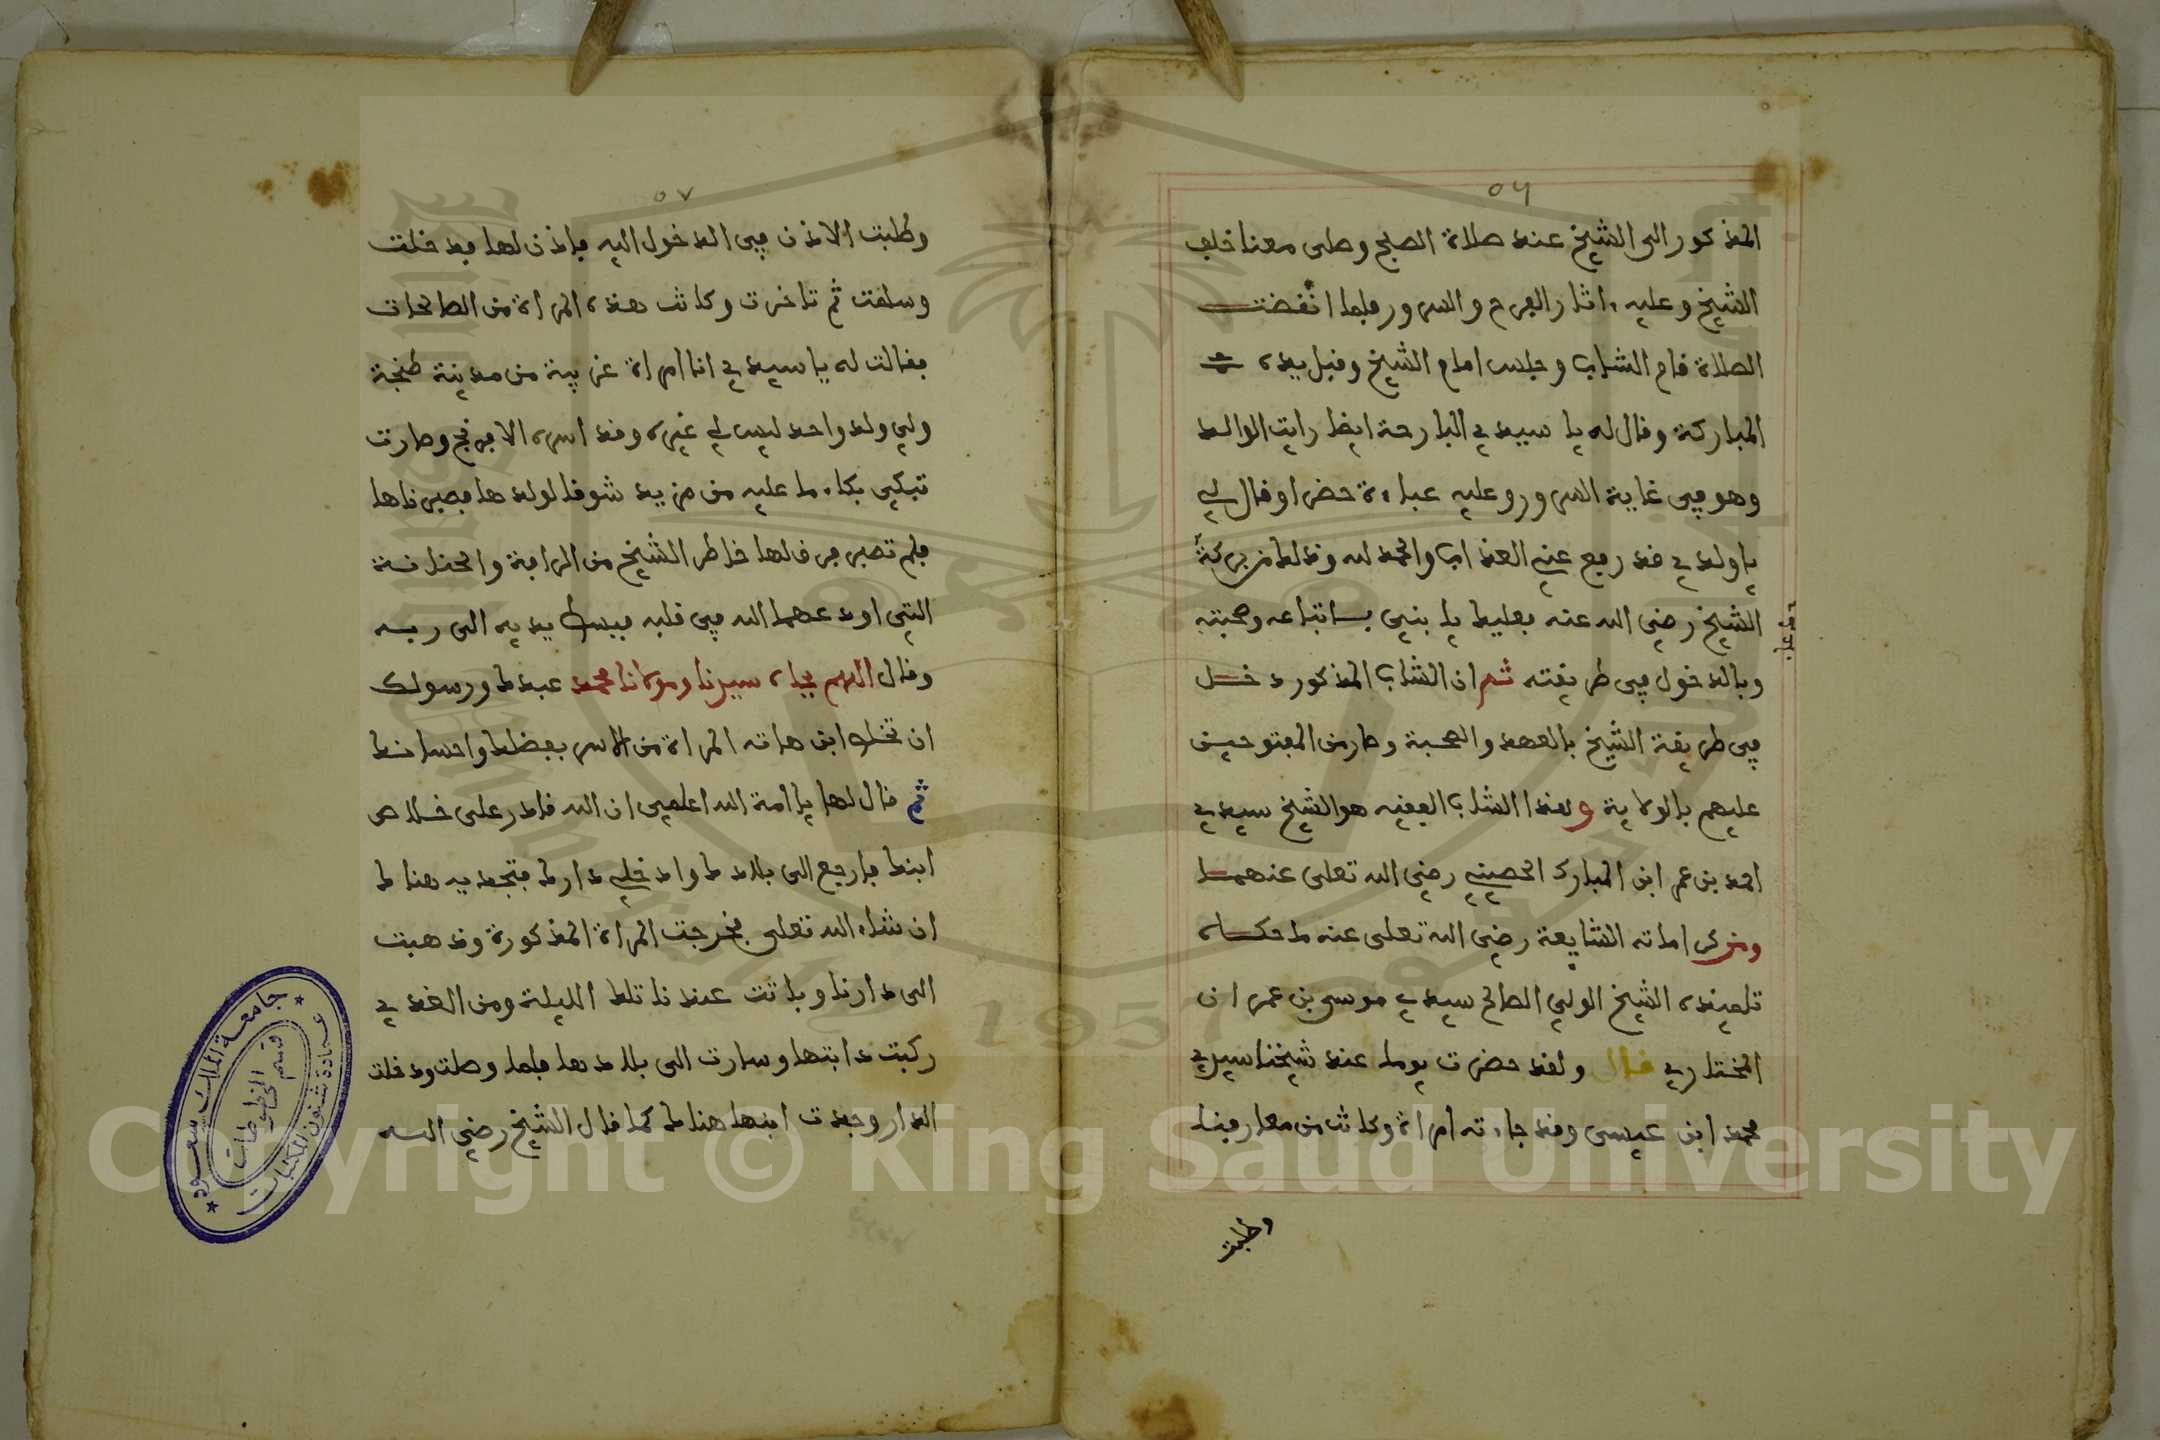 ٥٦
المذكور الى الشيخ عند صلاة الصبح وصلى معنا خلف
الشيخ وعليه ءاثار الفرح والسرور فلما انقضت
الصلاة قام الشاب وجلس امام الشيخ وقبل يده
المباركة وقال له يا سيدي البارحة ايضا رايت الوالد
وهو في غاية السرور وعليه عباءة خضرا وقال لي
يا ولدي قد رفع عني العذاب والحمد لله وذلك من بركة
الشيخ رضي الله عنه فعليك يا بني باتباعه وصحبته
وبالدخول في طريقته ثم ان الشاب المذكور دخل
في طريقة الشيخ بالعهد والصحبة وصار من المفتوحين
عليهم بالولاية وهذا الشاب الفقيه هو الشيخ سيدي
احمد بن عمر ابن المبارك الحصيني رضي الله تعلى عنهما
ومن كراماته الشايعة رضي الله تعلى عنه ما حكاه
تلميذه الشيخ الولي الصالح سيدي موسى بن عمر ان
المختاري قال ولقد حضرت يوما عند شيخنا سيدي
محمد ابن عيسى وقد جاءته امراة وكانت من معارفنا
وطلبت
٥٧
وطلبت الاذن في الدخول اليه فاذن لها فدخلت
وسلمت ثم تاخرت وكانت هذه المراة من الصالحات
فقالت له يا سيدي انا امراة غريبة من مدينة طنجة
ولي ولد واحد ليس لي غيره وقد اسره الافرنج وصارت
تبكي بكاء ما عليه من مزيد شوقا لولدها فصبرناها
فلم تصبر فرق لها خاطر الشيخ من الرافة والحنانة
التي اودعهما الله في قلبه فبسط يديه الى ربه
وقال اللهم بجاه سيدنا ومولانا محمد عبدك ورسولك
ان تخلص ابن هاته المراة من الاسر بفضلك واحسانك
ثم قال لها يا امة الله اعلمي ان الله قادر على خلاص
ابنك فارجع الى بلادك وادخلي دارك فتجديه هناك
ان شاء الله تعلى فخرجت المراة المذكورة وذهبت
الى دارنا وباتت عندنا تلك الليلة ومن الغد ي
ركبت دابتها وسارت الى بلادها فلما وصلت ودخلت
الدار وجدت ابنها هناك كما قال الشيخ رضي الله
جامعة الملك سعود
عمادة شئون المكتبات
قسم المخطوطات
1957
Copyright © King Saud University